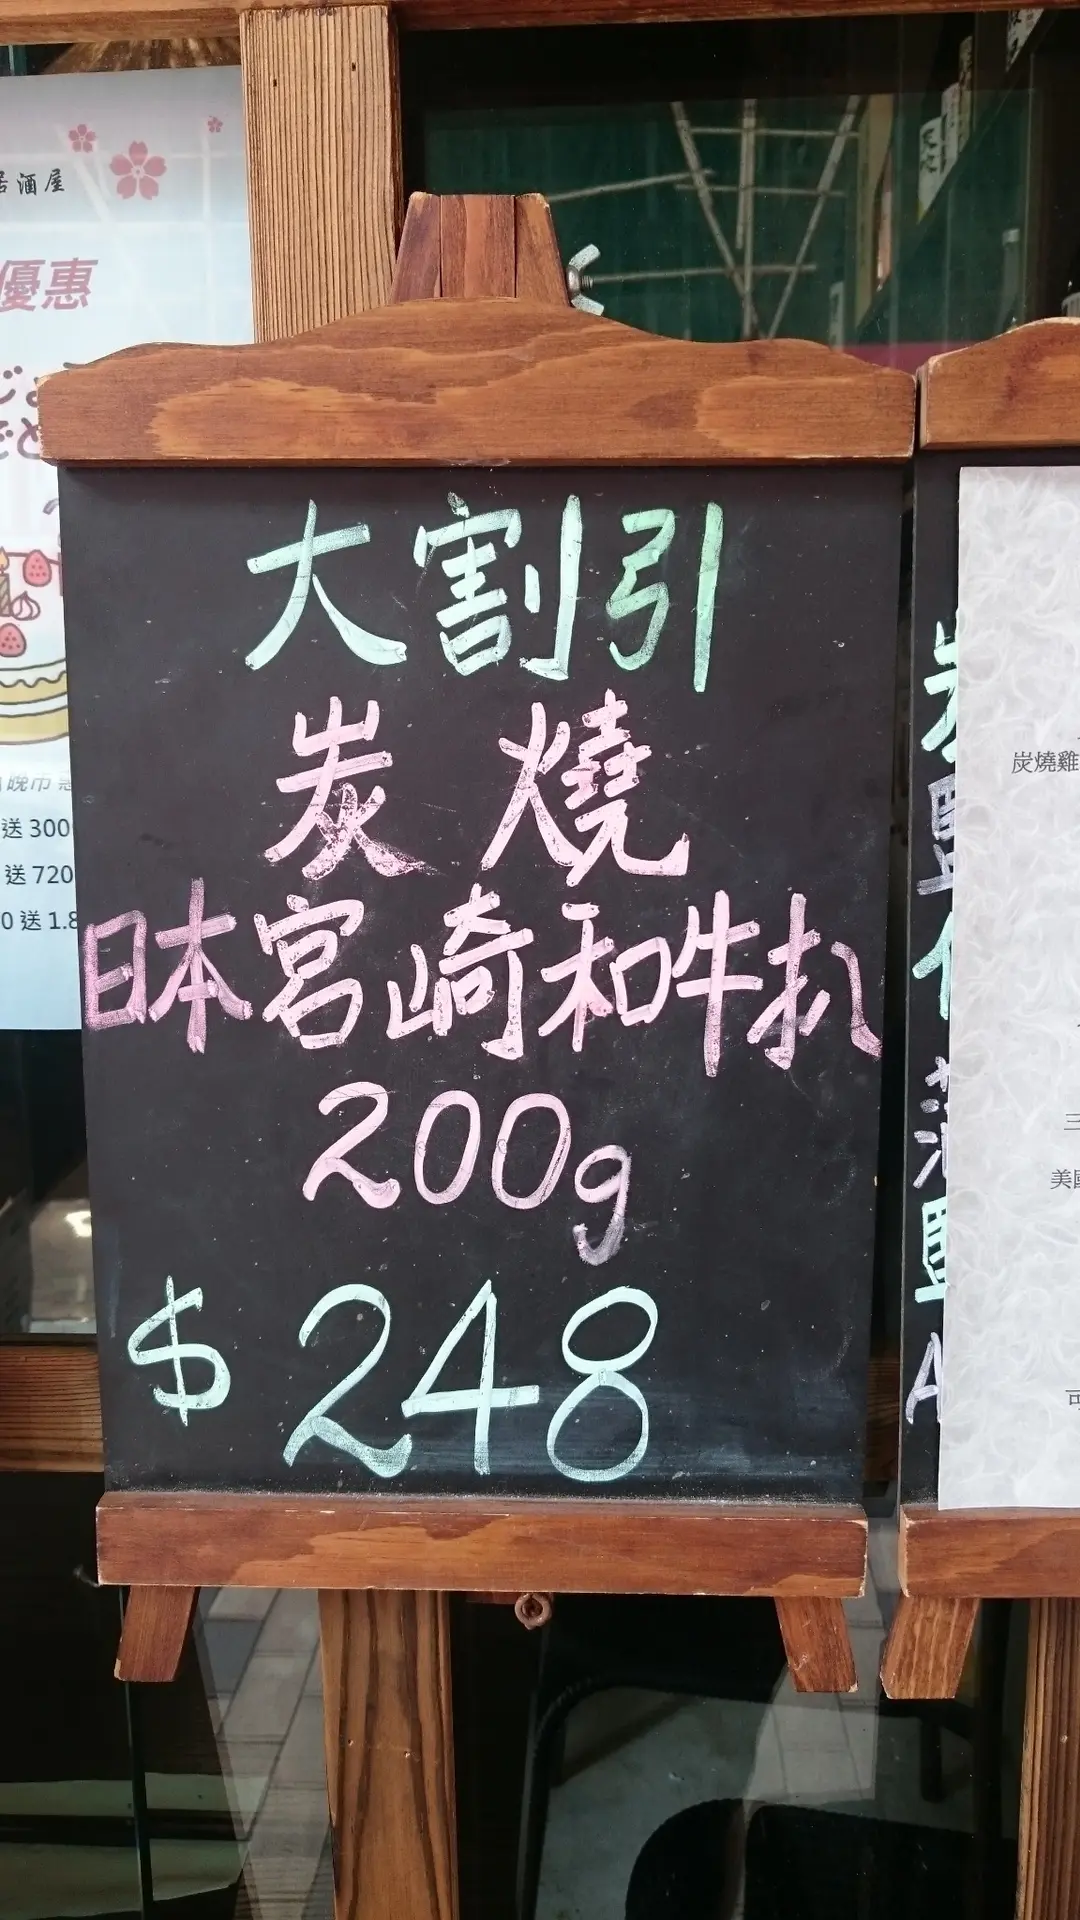 居酒屋
優惠
晚市
送 300
送 720
0 送 1.8
大割引
炭燒
日本宮崎和牛扒
200g
$248
炭燒雞
三
美國
可